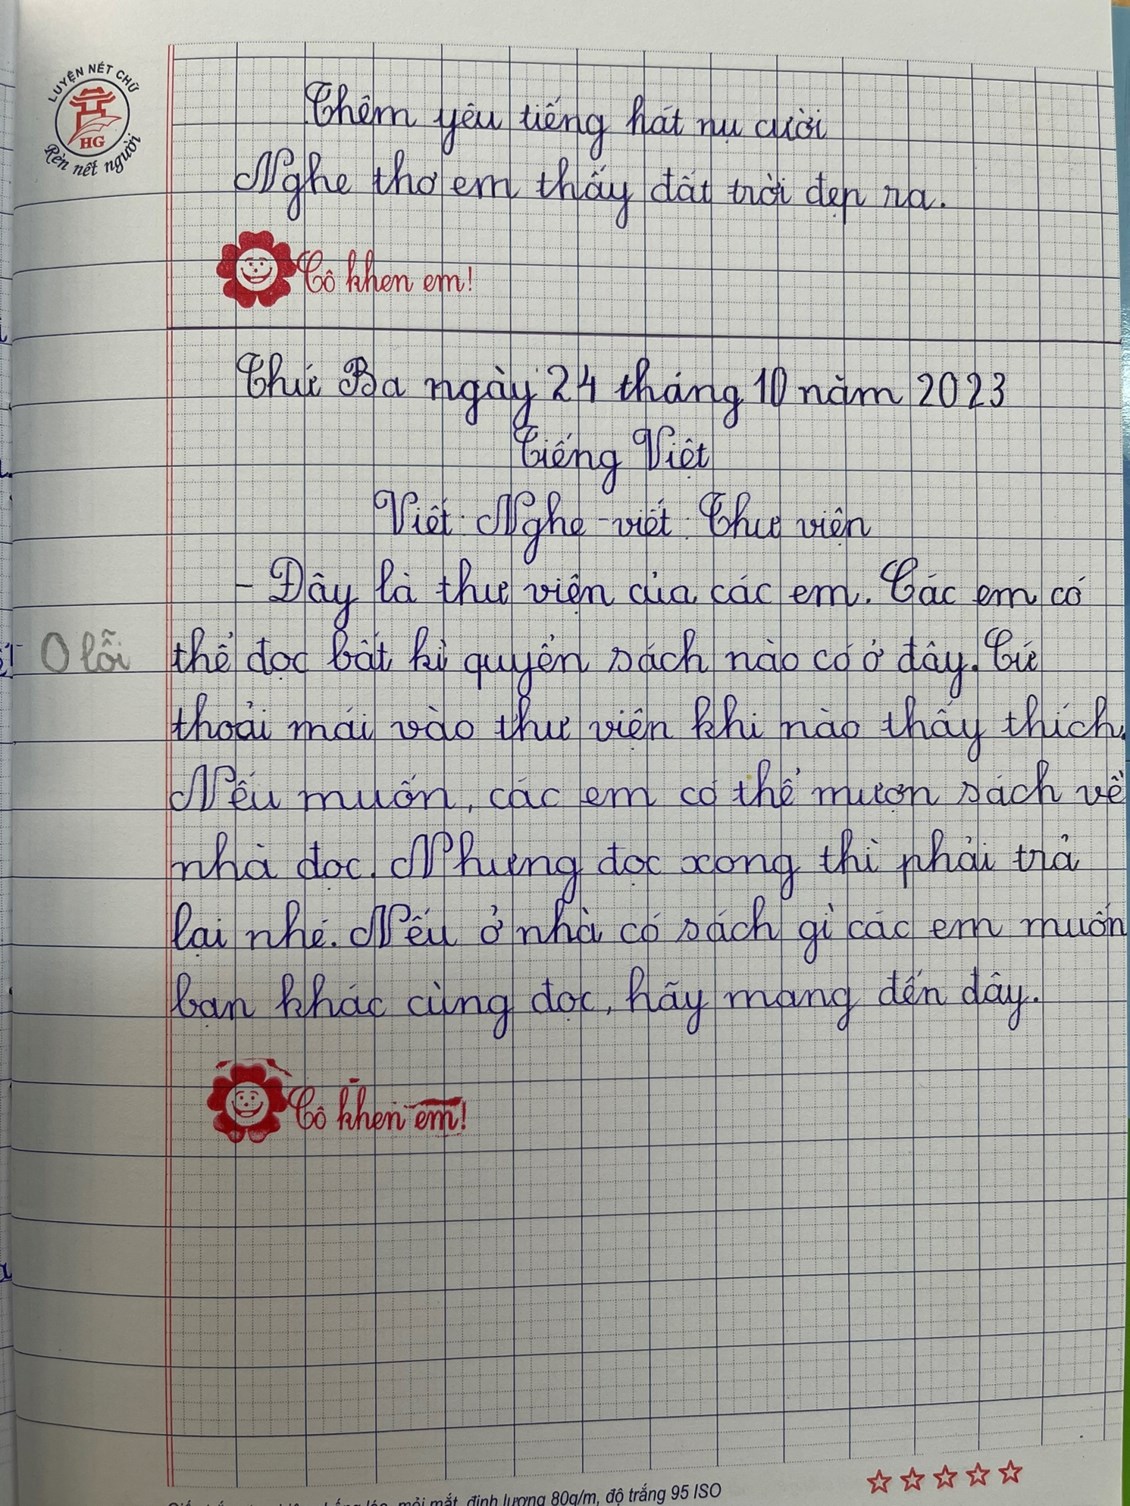 LUYỆN NÉT CHỮ
HG
Rèn nết người
Thêm yêu tiếng hát nụ cười
Nghe thơ em thấy đất trời đẹp ra.
Cô khen em!
Thứ Ba ngày 24 tháng 10 năm 2023
Tiếng Việt
Viết: Nghe - viết: Thư viện
- Đây là thư viện của các em. Các em có
0 lỗi
thể đọc bất kì quyển sách nào có ở đây. Cứ
thoải mái vào thư viện khi nào thấy thích.
Nếu muốn, các em có thể mượn sách về
nhà đọc. Nhưng đọc xong thì phải trả
lại nhé. Nếu ở nhà có sách gì các em muốn
bạn khác cùng đọc, hãy mang đến đây.
Cô khen em!
mỏi mắt, định lượng 80g/m, độ trắng 95 ISO